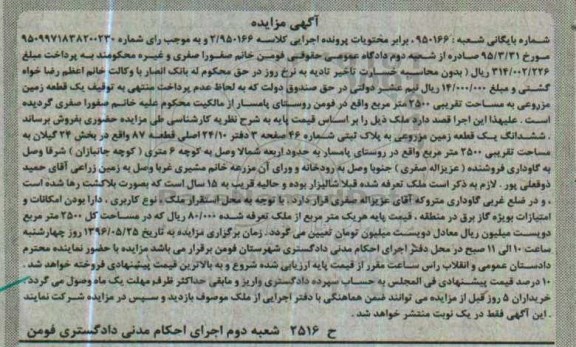 آگهی مزایده
شماره بایگانی شعبه: ۹۵۰۱۶۶، برابر محتویات پرونده اجرایی کلاسه ۲/۹۵۰۱۶۶ و به موجب رای شماره ۹۵۰۹۹۷۱۸۳۸۲۰۰۲۳۰
مورخ ۹۵/۳/۳۱ صادره از شعبه دوم دادگاه عمومی حقوقی فومن خانم صفورا صفری و غیره محکومند به پرداخت مبلغ
۳۱۴/۰۰۲/۲۲۶ ریال (بدون محاسبه خسارت تأخیر تادیه به نرخ روز در حق محکوم له بانک انصار با وکالت خانم اعظم رضا خواه
گشتی و مبلغ ۱۴/۰۰۰/۰۰۰ ریال نیم عشر دولتی در حق صندوق دولت که به لحاظ عدم پرداخت منتهی به توقیف یک قطعه زمین
مزروعی به مساحت تقریبی ۲۵۰۰ متر مربع واقع در فومن روستای پامسار از مالکیت محکوم علیه خانم صفورا صفری گردیده
است. علیهذا این اجرا قصد دارد ملک ذیل را بر اساس قیمت پایه به شرح نظریه کارشناسی طی مزایده حضوری بفروش برساند
. ششدانگ یک قطعه زمین مزروعی به پلاک ثبتی شماره ۴۶ صفحه ۳ دفتر ۲۴/۱۰ اصلی قطعه ۸۷ واقع در بخش ۲۴ گیلان به
مساحت تقریبی ۲۵۰۰ متر مربع واقع در روستای پامسار به حدود اربعه شمالا وصل به کوچه ۶ متری (کوچه جانبازان) شرقا وصل
به گاوداری فروشنده (عزیزاله صفری) جنوبا وصل به رودخانه و ورای آن مزرعه خانم مشیری غربا وصل به زمین زراعی آقای حمید
ذوقعلی پور. لازم به ذکر است ملک تعرفه شده قبلا شالیزار بوده و حالیه قریب به ۱۵ سال است که بصورت بلاکشت رها شده است
، و در ضلع غربی گاوداری متروکه آقای عزیزاله صفری قرار دارد. با توجه به محل استقرار ملک، نوع کاربری، دارا بودن امکانات و
امتیازات بویژه گاز برق در منطقه، قیمت پایه هریک متر مربع از ملک تعرفه شده ۸۰/۰۰۰ ریال که در مساحت کل ۲۵۰۰ متر مربع
دویست میلیون ریال معادل دویست میلیون تومان تعیین می گردد. زمان برگزاری مزایده به تاریخ ۱۳۹۶/۰۵/۲۵ روز چهارشنبه
ساعت ۱۰ الی ۱۱ صبح در محل دفتر اجرای احکام مدنی دادگستری شهرستان فومن برقرار می باشد مزایده با حضور نماینده محترم
دادستان عمومی و انقلاب راس ساعت مقرر از قیمت پایه ارزیابی شده شروع و به بالاترین قیمت پیشنهادی فروخته خواهد شد.
۱۰ درصد قیمت پیشنهادی فی المجلس به حساب سپرده دادگستری واریز و مابقی حداکثر ظرف مهلت یک ماه وصول می گردد.
خریداران ۵ روز قبل از مزایده می توانند ضمن هماهنگی با دفتر اجرایی از ملک موصوف بازدید و سپس در مزایده شرکت نمایند
. این آگهی فقط در یک نوبت منتشر خواهد شد.
ح ۲۵۱۶ شعبه دوم اجرای احکام مدنی دادگستری فومن